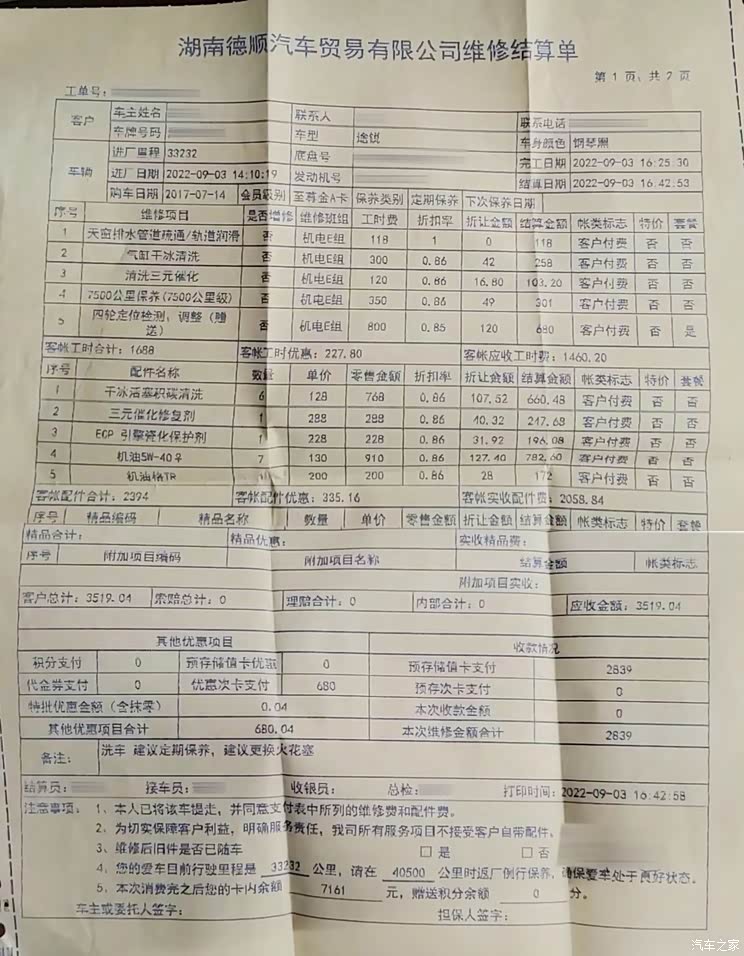 湖南德顺汽车贸易有限公司维修结算单
第 1 页、共 2 页
工单号:
客户 车主姓名 联系人 联系电话
车牌号码 车型 途锐 车身颜色 钢琴黑
车辆 进厂里程 33232 底盘号 完工日期 2022-09-03 16:25:30
进厂日期 2022-09-03 14:10:19 发动机号 结算日期 2022-09-03 16:42:53
购车日期 2017-07-14 会员级别 至尊金A卡 保养类别 定期保养 下次保养日期
序号 维修项目 是否增修 维修班组 工时费 折扣率 折让金额 结算金额 帐类标志 特价 套餐
1 天窗排水管道疏通/轨道润滑 否 机电E组 118 1 0 118 客户付费 否 否
2 气缸干冰清洗 否 机电E组 300 0.86 42 258 客户付费 否 否
3 清洗三元催化 否 机电E组 120 0.86 16.80 103.20 客户付费 否 否
4 7500公里保养(7500公里级) 否 机电E组 350 0.86 49 301 客户付费 否 否
5 四轮定位检测、调整(赠送) 否 机电E组 800 0.85 120 680 客户付费 否 是
客帐工时合计: 1688 客帐工时优惠: 227.80 客帐应收工时费: 1460.20
序号 配件名称 数量 单价 零售金额 折扣率 折让金额 结算金额 帐类标志 特价 套餐
1 干冰活塞积碳清洗 6 128 768 0.86 107.52 660.48 客户付费 否 否
2 三元催化修复剂 1 288 288 0.86 40.32 247.68 客户付费 否 否
3 ECP 引擎瓷化保护剂 1 228 228 0.86 31.92 196.08 客户付费 否 否
4 机油5W-40 7 130 910 0.86 127.40 782.60 客户付费 否 否
5 机油格TR 200 200 0.86 28 172 客户付费 否 否
客帐配件合计: 2394 客帐配件优惠: 335.16 客帐实收配件费: 2058.84
序号 精品编码 精品名称 数量 单价 零售金额 折让金额 结算金额 帐类标志 特价 套餐
精品合计: 精品优惠: 实收精品费:
序号 附加项目编码 附加项目名称 结算金额 帐类标志
附加项目实收:
客户总计: 3519.04 索赔总计: 0 理赔合计: 0 内部合计: 0 应收金额: 3519.04
其他优惠项目 收款情况
积分支付 0 预存储值卡优惠 0 预存储值卡支付 2839
代金券支付 0 优惠次卡支付 680 预存次卡支付 0
特批优惠金额(含抹零) 0.04 本次收款金额 0
其他优惠项目合计 680.04 本次维修金额合计 2839
备注: 洗车 建议定期保养,建议更换火花塞
结算员: 接车员: 收银员: 总检: 打印时间: 2022-09-03 16:42:58
注意事项: 1、本人已将该车提走,并同意支付表中所列的维修费和配件费。
2、为切实保障客户利益,明确服务责任,我司所有服务项目不接受客户自带配件。
3、维修后旧件是否已随车 □ 是 □ 否
4、您的爱车目前行驶里程是 33232 公里,请在 40500 公里时返厂例行保养,确保爱车处于良好状态。
5、本次消费完之后您的卡内余额 7161 元,赠送积分余额 0 分。
车主或委托人签字: 担保人签字:
汽车之家